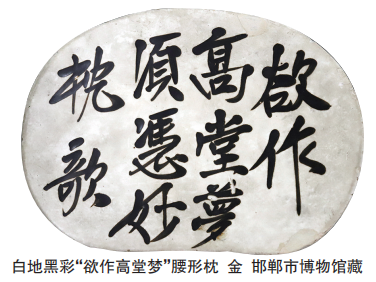 欲作
高堂夢
須憑妙
枕歌
白地黑彩“欲作高堂梦”腰形枕 金 邯郸市博物馆藏